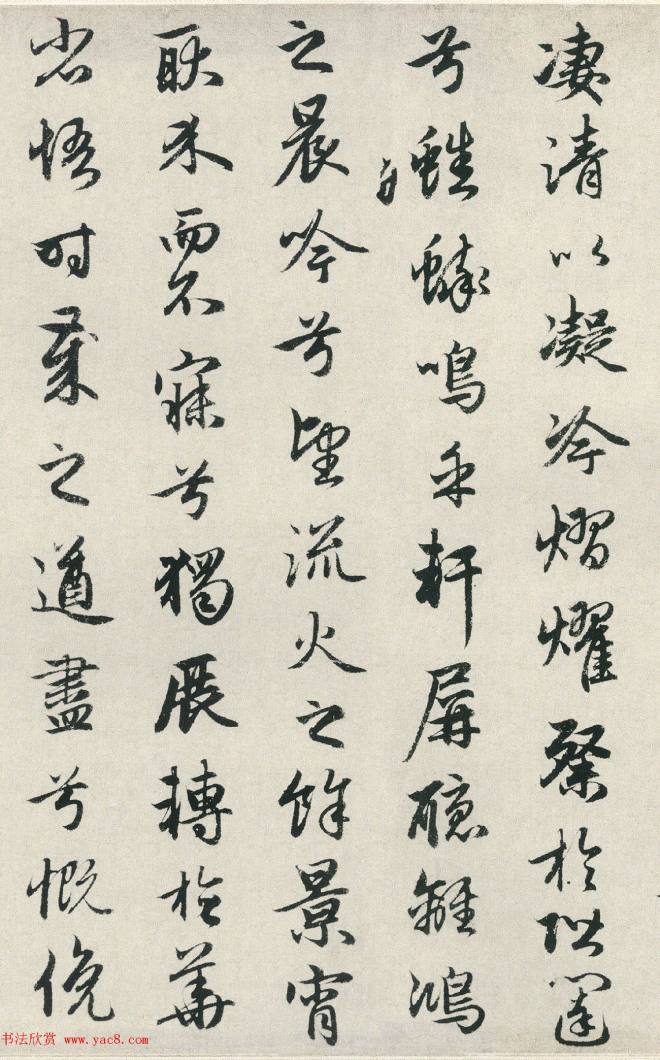 凄清以凝冷熠燿粲於階闥
兮蟋蟀鳴乎軒屏聽離鴻
之晨吟兮望流火之餘景宵
耿介而不寐兮獨展轉於華
省悟時歲之遒盡兮慨俛
书法欣赏 www.yac8.com